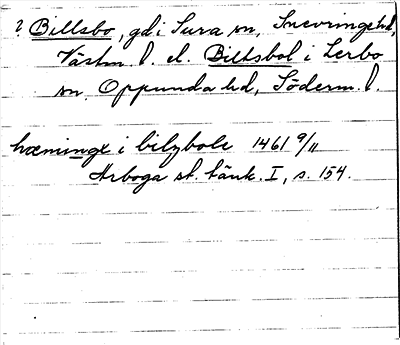 ? Billsbo, gd i Sura sn, Snevringe hd,
Västm. l. el. Biltsbol i Lerbo
sn, Oppunda hd, Söderm. l.
hæminge i bilzbole 1461 9/11
Arboga st. tänk. I, s. 154.